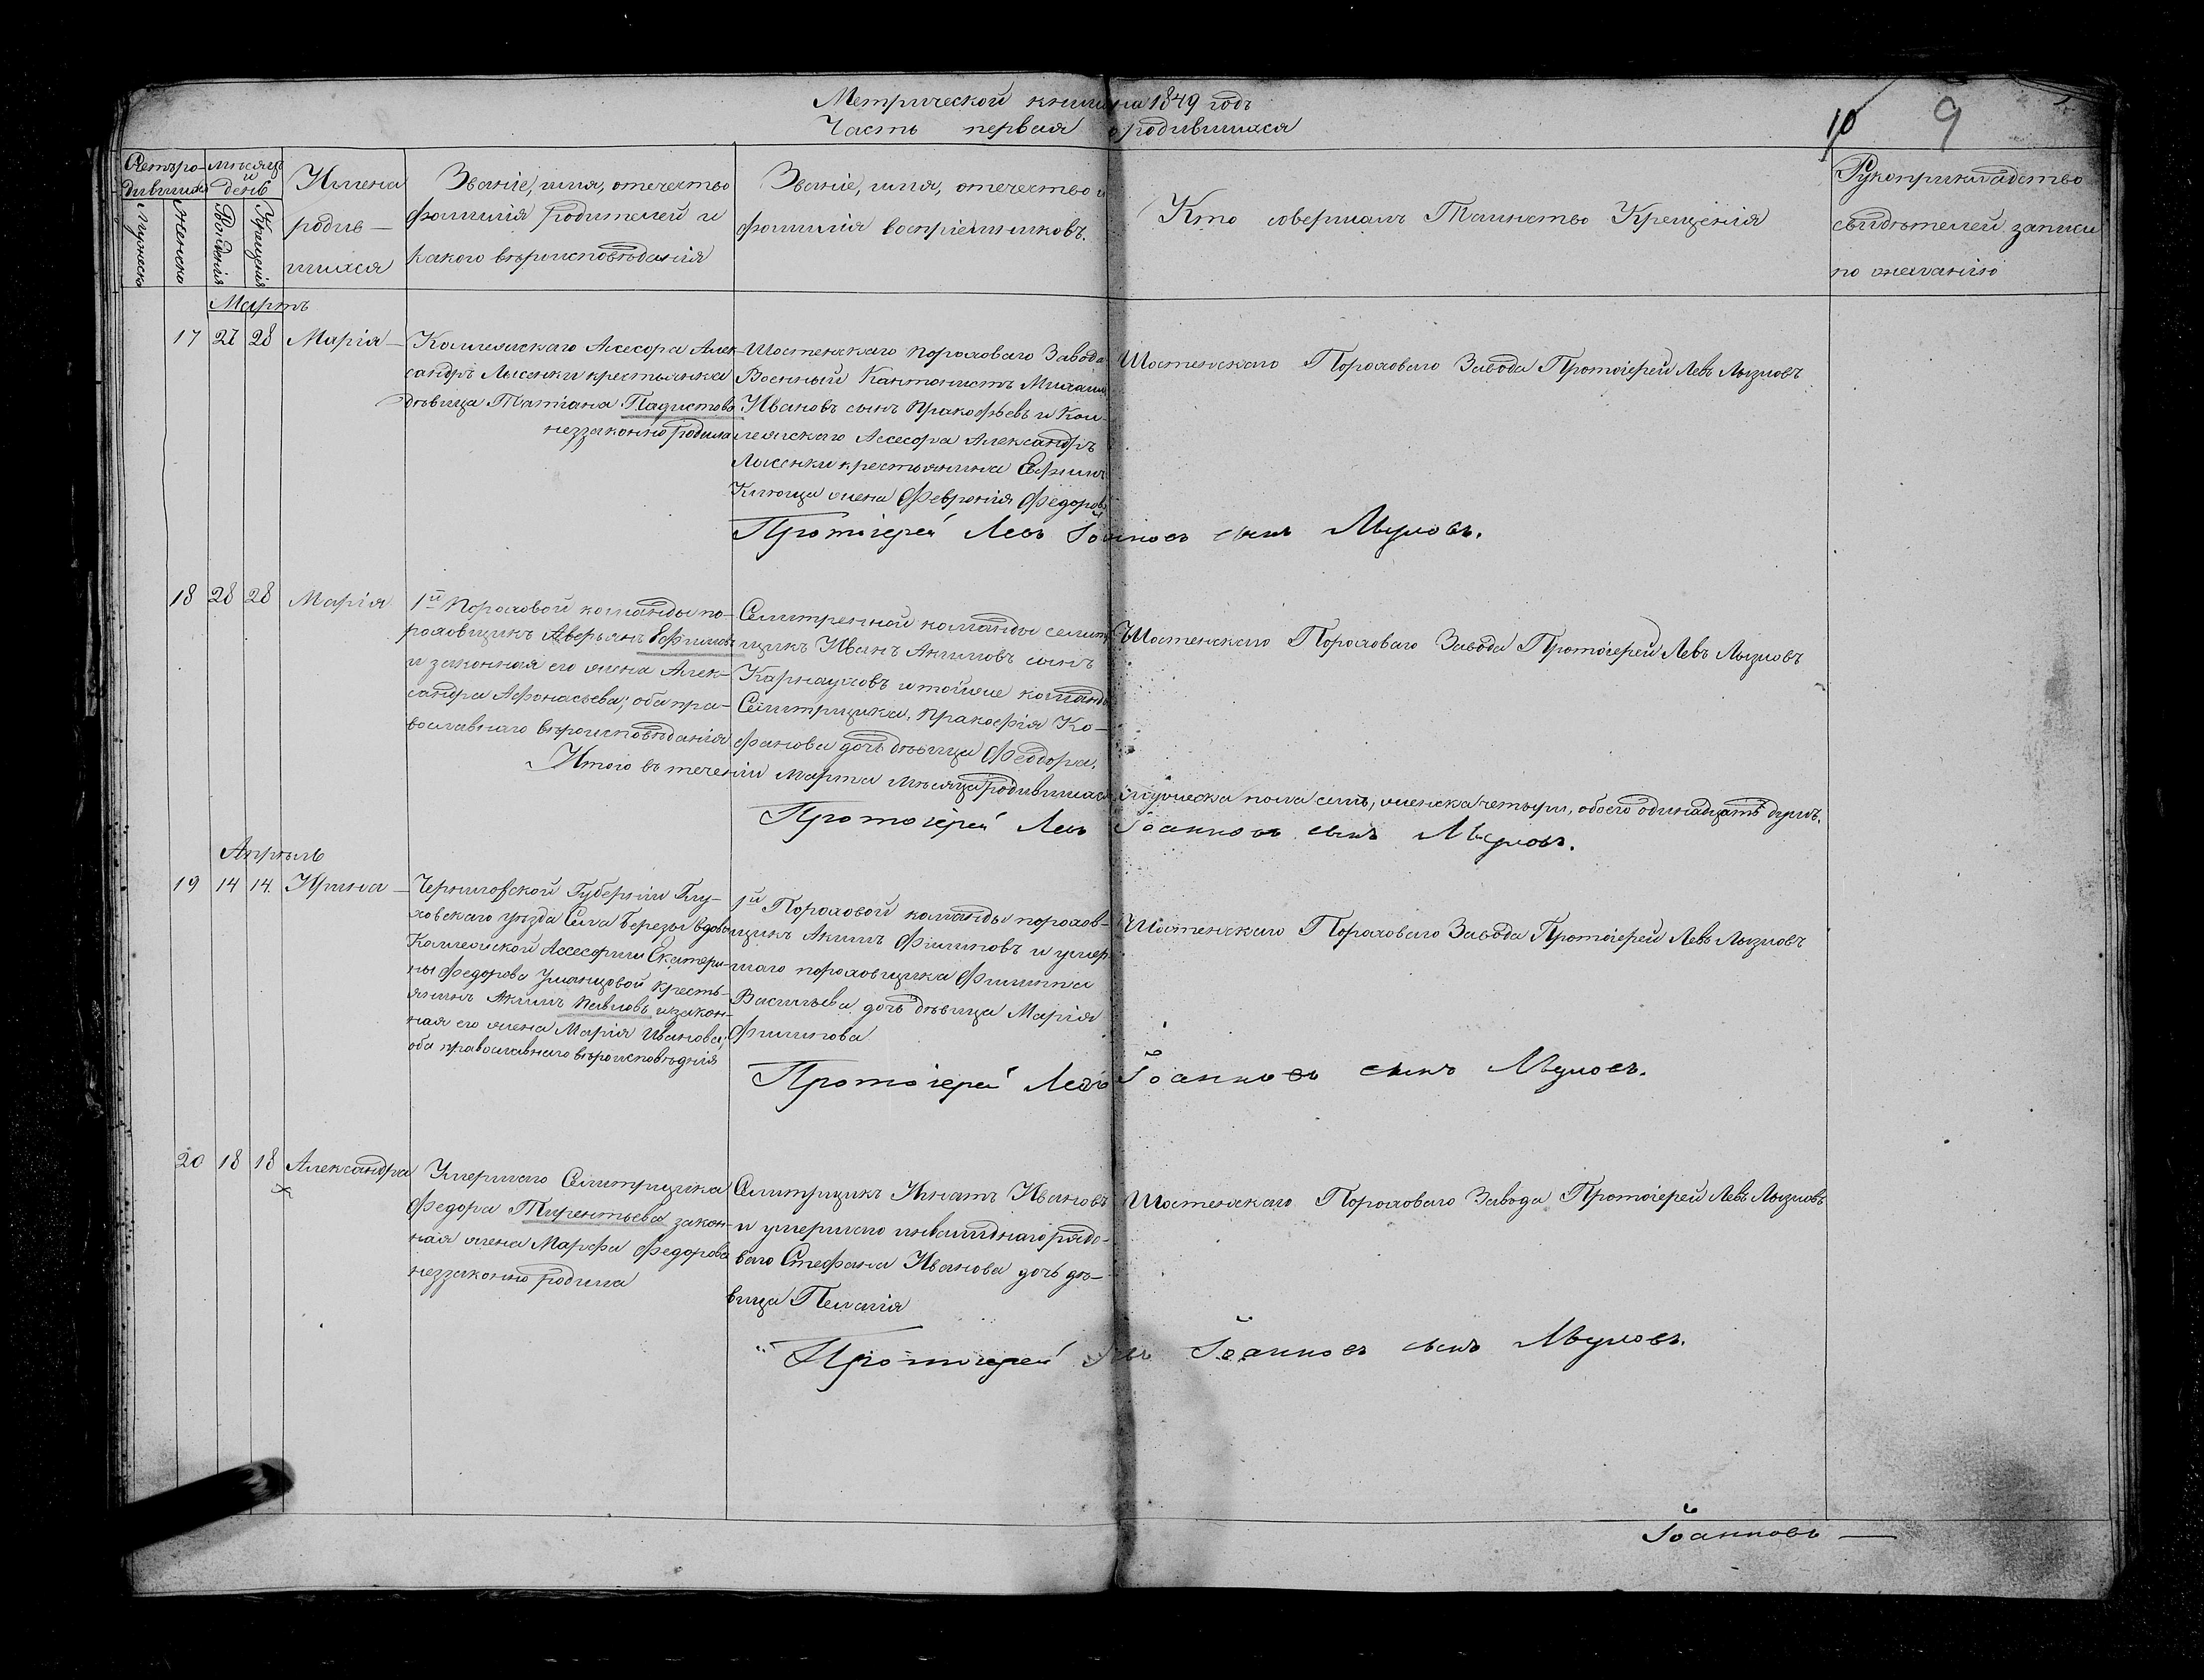 Метрической книги на 1849 годъ
Часть первая о родившихся
10 9
Счетъ ро-
дившихся
Мужеска
Женска
мѣсяцъ
и
день
Рожденія
Крещенія
Имена
родив-
шихся
Званіе, имя, отечество
фамилія родителей и
какого вѣроисповѣданія
Званіе, имя, отечество и
фамилія воспріемниковъ.
Кто совершалъ Таинство Крещенія
Рукоприкладство
свидѣтелей записи
по желанію
Мартъ
17 27 28 Марія
Коллежскаго Асесора Алек-
сандръ Лисенки крестьянка
дѣвица Татіана
неззаконно родила
Шостенскаго Пороховаго Завода
Военный Кантонистъ Михаилъ
Ивановъ сынъ Пракофьевъ и Кол-
лежскаго Ассесора Александръ
Лисенки крестьянина Ефима
жена Февронія Федорова
Шостенскаго Пороховаго Завода Протоіерей Левъ Лызловъ
Протоіерей Левъ Іоанновъ сынъ Лызловъ.
18 28 28 Марія
1й Пороховой команды по-
роховщикъ Аверьянъ Ефимовъ
и законная его жена Алек-
сандра Афонасьева; оба пра-
вославнаго вѣроисповѣданія
Селитренной команды селитр-
щикъ Иванъ Акимовъ сынъ
Карнауховъ и тойже команды
Селитрщика, Пракофія Ко-
фанова дочь дѣвица Феодора.
Шостенскаго Пороховаго Завода Протоіерей Левъ Лызловъ
Итого въ теченіи Марта мѣсяца родившихся мужеска пола семь, женска четыри, обоего одинадцать душъ.
Протоіерей Левъ Іоанновъ сынъ Лызловъ.
Апрѣль
19 14 14 Ирина
Черниговской Губерніи Глу-
ховскаго уѣзда Села Березы вдовы
Коллежской Ассесорши Екатери-
ны Федорова Уманцовой кресть-
янинъ Акимъ Павловъ и закон-
ная его жена Марія Иванова;
оба православнаго вѣроисповѣднія
1й Пороховой команды порохов-
щикъ Акимъ Филиповъ и умер-
шаго пороховщика Филиппа
Васильева дочь дѣвица Марія
Филипова
Шостенскаго Пороховаго Завода Протоіерей Левъ Лызловъ
Протоіерей Левъ Іоанновъ сынъ Лызловъ.
20 18 18 Александра
Умершаго Селитрщика
Федора Тирентьева закон-
ная жена Марфа Федорова
неззаконно родила
Селитрщикъ Игнатъ Ивановъ
и умершаго инвалиднаго рядо-
ваго Стефана Иванова дочь дѣ-
вица Пелагія
Шостенскаго Пороховаго Завода Протоіерей Левъ Лызловъ
Протоіерей Левъ Іоанновъ сынъ Лызловъ.
Іоанновъ